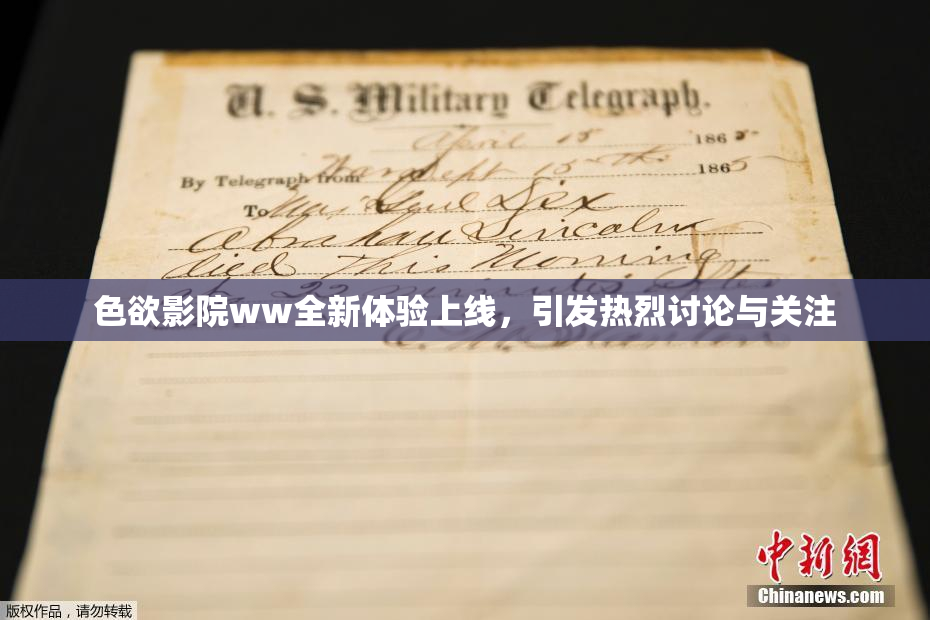 U. S. Military Telegraph.
April 15 1865
By Telegraph from War Dept 15th 1865
To Maj Genl Dix
Abraham Lincoln
died This Morning
22 minutes after
色欲影院ww全新体验上线，引发热烈讨论与关注
E. M. Stanton
中新网
Chinanews.com
版权作品，请勿转载